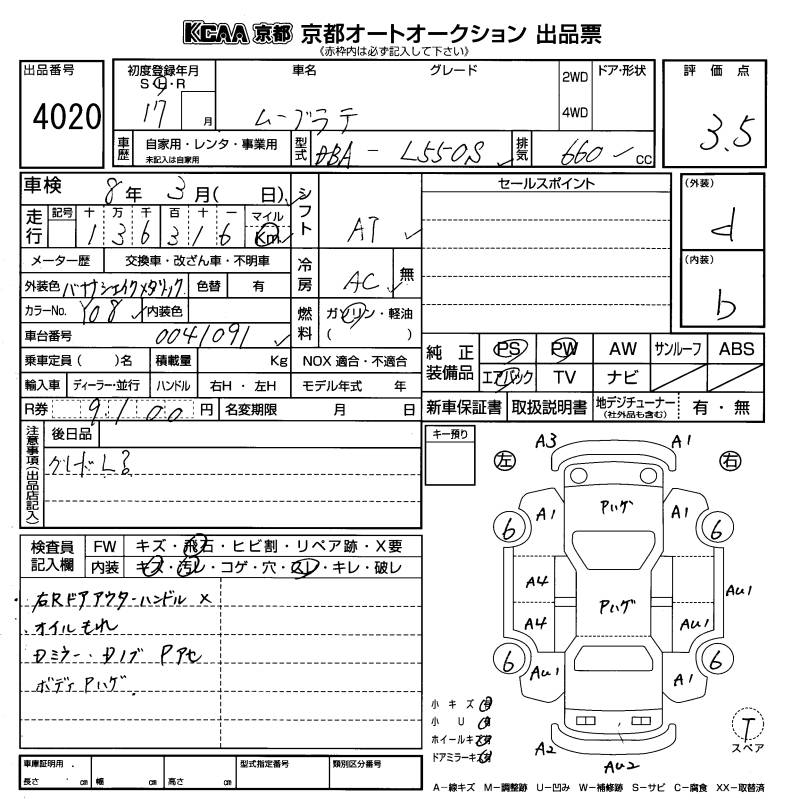 KCAA 京都 京都オートオークション 出品票
《赤枠内は必ず記入して下さい》
出品番号 4020
初度登録年月 S・H・R 17 月
車名 グレード ムーブラテ
2WD 4WD ドア・形状
評価点 3.5
車歴 自家用・レンタ・事業用 未記入は自家用
型式 DBA - L550S
排気 660 cc
車検 8年 3月( 日)
シフト AT
セールスポイント
(外装) d
走行 記号 十 万 千 百 十 一 マイル Km
1 3 6 3 1 6
メーター歴 交換車・改ざん車・不明車
冷房 AC 無
(内装) b
外装色 色替 有
カラーNo. Y08 内装色
燃料 ガソリン・軽油 ( )
車台番号 0041091
乗車定員( )名 積載量 Kg NOX 適合・不適合
純正装備品 PS PW AW サンルーフ ABS
エアバック TV ナビ
輸入車 ディーラー・並行 ハンドル 右H・左H モデル年式 年
R券 9100 円 名変期限 月 日
新車保証書 取扱説明書 地デジチューナー (社外品も含む) 有・無
注意事項(出品店記入) 後日品
キー預り
グレードL
左 右
A3 A1
A1 Pハゲ A1
6 6
A4 Au1
Pハゲ
A4 Au1
6 6
Au1 A1
A2 Au2
検査員記入欄 FW キズ・飛石・ヒビ割・リペア跡・X要
内装 キズ・汚レ・コゲ・穴・スレ・キレ・破レ
・右Rドアアウターハンドル ×
・オイルもれ
Dミラー・DノブPアセ
ボディPハゲ
小キズ 有
小U 有
ホイールキズ 有
ドアミラーキズ 有
T スペア
車庫証明用 長さ cm 幅 cm 高さ cm
型式指定番号 類別区分番号
A－線キズ M－調整跡 U－凹み W－補修跡 S－サビ C－腐食 XX－取替済